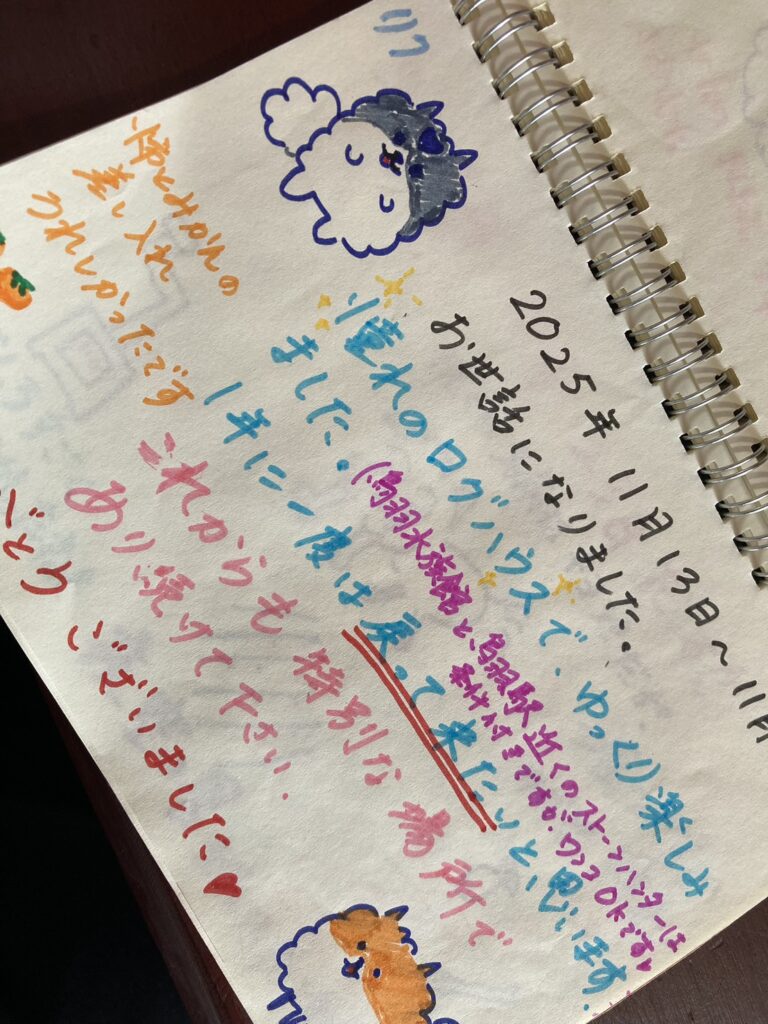 リフ
2025年 11月13日～11月
お世話になりました。
憧れのログハウスで、ゆっくり楽しみ
ました。
(鳥羽水族館と、鳥羽駅近くのストーンハンターは
条件付きですが、ワンコOKです♥
1年に一度は戻って来たいと、思います。
これからも特別な場所で
あり続けて下さい.
ございました♥
差し入れ
うれしかったです